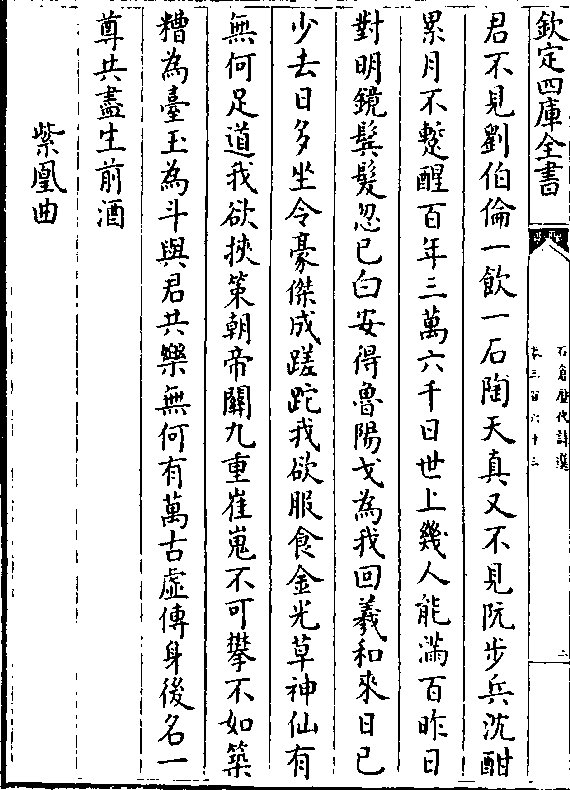 欽定四庫全書
石倉歷代詩選
卷三百六十三
二
君不見劉伯倫一飲一石陶天真又不見阮步兵沈酣
累月不蹔醒百年三萬六千日世上幾人能滿百昨日
對明鏡鬂髮忽已白安得魯陽戈為我回羲和來日已
少去日多坐令豪傑成蹉跎我欲服食金光草神仙有
無何足道我欲挾策朝帝關九重崔嵬不可攀不如築
糟為臺玉為斗與君共樂無何有萬古虛傳身後名一
尊共盡生前酒
紫凰曲